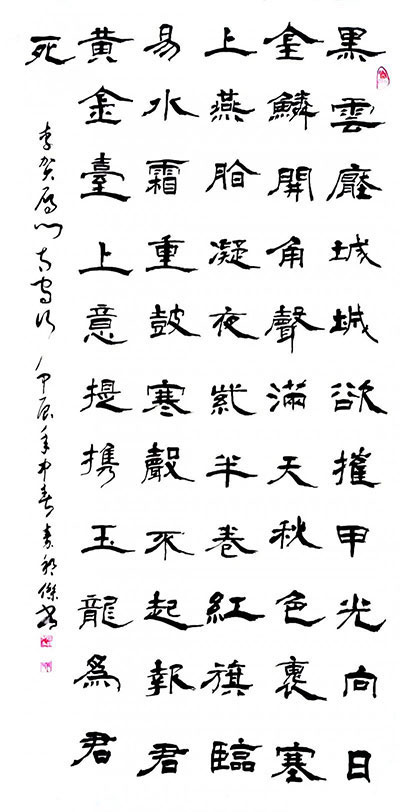 黑雲壓城城欲摧甲光向日
金鱗開角聲滿天秋色裏塞
上燕脂凝夜紫半卷紅旗臨
易水霜重鼓寒聲不起報君
黃金臺上意提携玉龍爲君
死
李贺雁门太守行 甲辰年中春 傑书